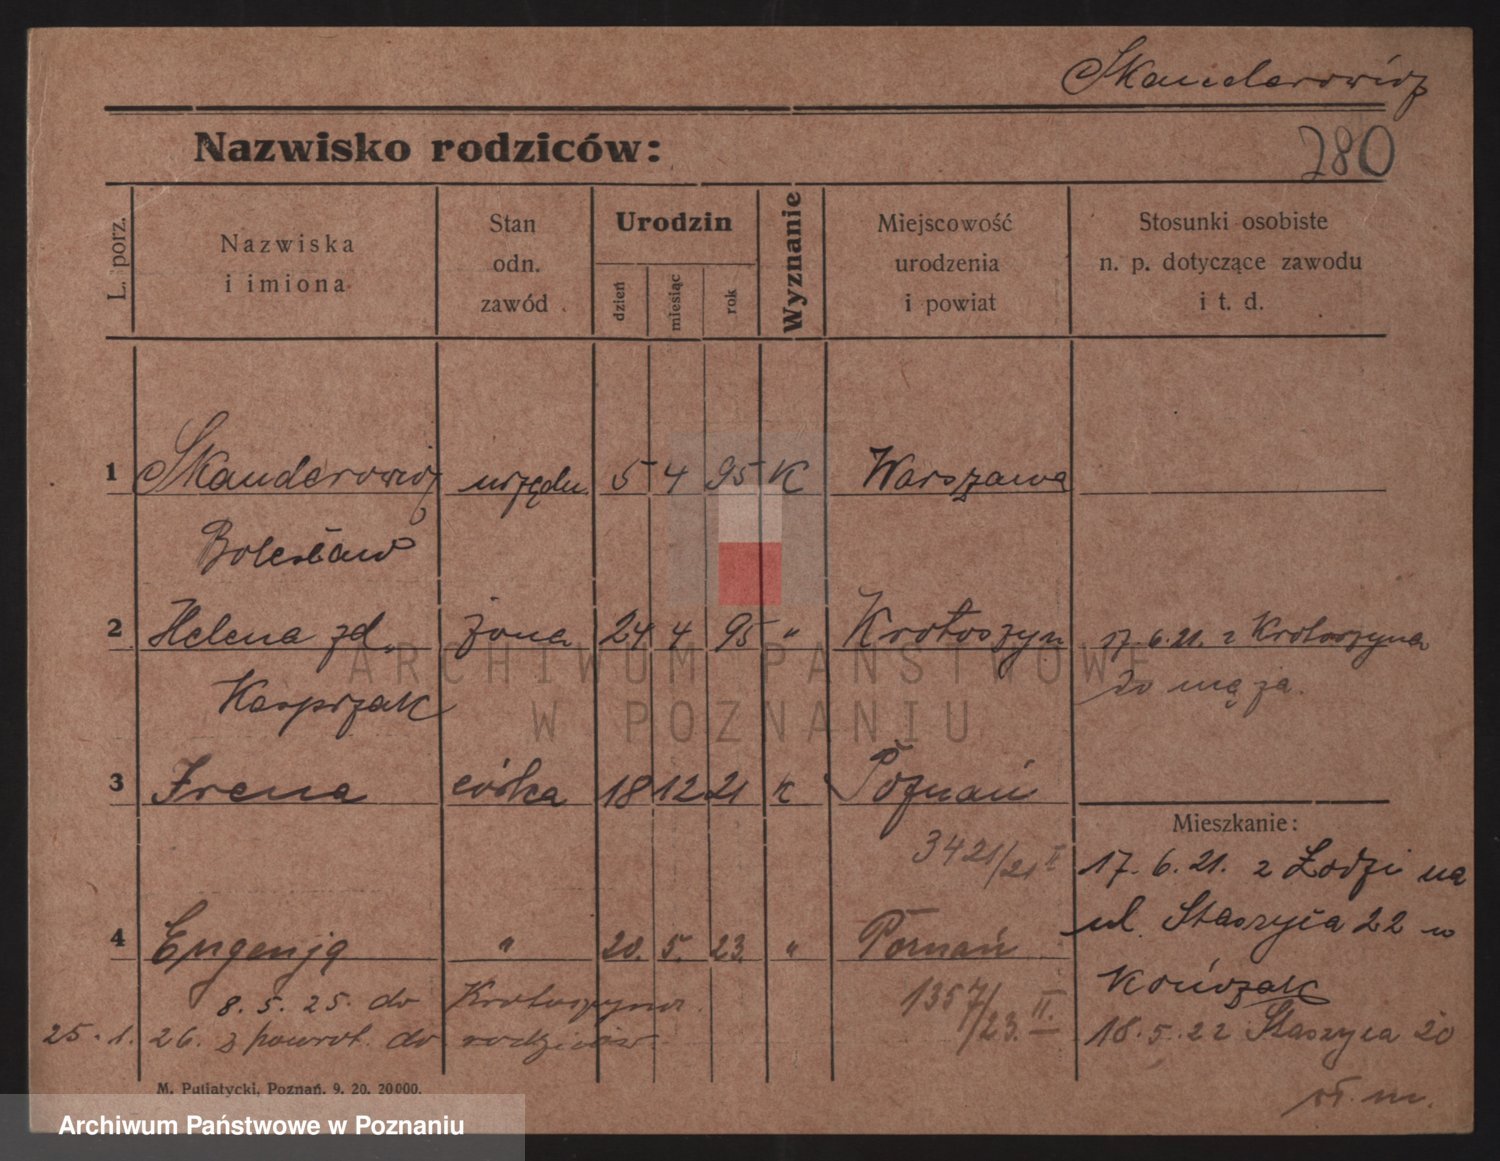 Skanderowicz
Nazwisko rodziców:
280
L. porz.
Nazwiska
i imiona
Stan
odn.
zawód
Urodzin
dzień
miesiąc
rok
Wyznanie
Miejscowość
urodzenia
i powiat
Stosunki osobiste
n. p. dotyczące zawodu
i t. d.
1 Skanderowicz urzędn. 5 4 95 K Warszawa
Bolesław
2 Helena zd. żona 24 4 95 " Krotoszyn 17. 6. 21. z Krotoszyna
Kasprzak do męża.
3 Irena córka 18 12 21 K Poznań
3421/21 II
Mieszkanie:
17. 6. 21. z Łodzi na
ul. Staszyca 22 w
4 Eugenja " 20. 5. 23. " Poznań
1357/23. II.
8. 5. 25. do Krotoszyna
25. 1. 26. z powrot. do rodziców.
18. 5. 22 Staszyca 20
M. Putiatycki, Poznań. 9. 20. 20000.
ARCHIWUM PAŃSTWOWE
W POZNANIU
Archiwum Państwowe w Poznaniu